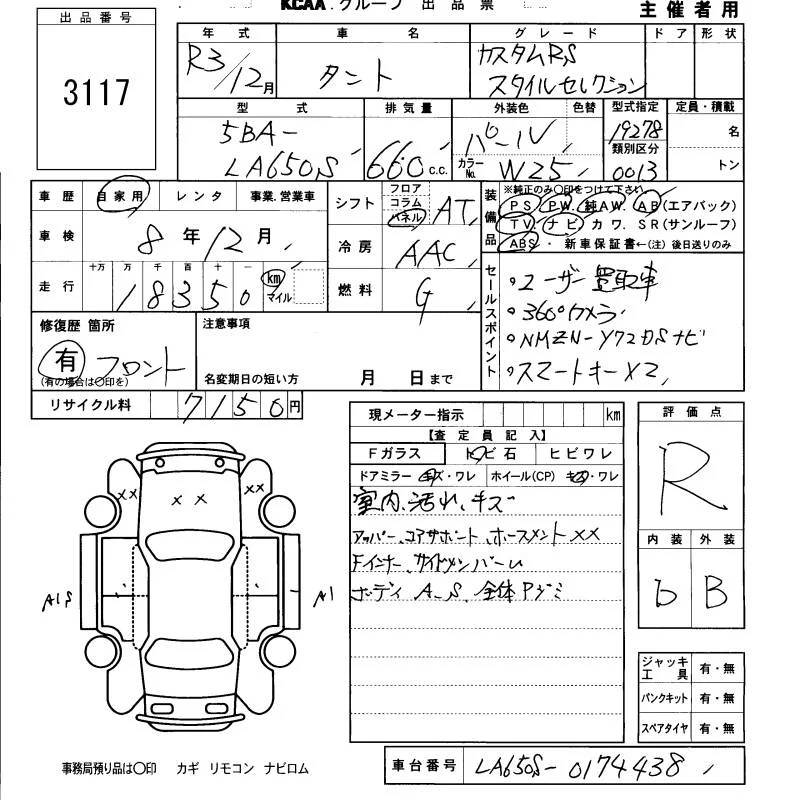 KCAA.グループ 出品票
主催者用
出品番号
3117
年式 車名 グレード ドア 形状
R3/12月 タント カスタムRS
スタイルセレクション
型式 排気量 外装色 色替 型式指定 定員・積載
5BA- パール 19278 名
類別区分
LA650S 660 c.c. カラーNo. W25 0013 トン
車歴 自家用 レンタ 事業.営業車
シフト フロア コラム パネル AT
装備品 ※純正のみ○印をつけて下さい
PS PW. 純AW. AB(エアバック)
TV. ナビ カワ. SR(サンルーフ)
ABS・新車保証書←(注)後日送りのみ
車検 8年12月
冷房 AAC
走行 十万 万 千 百 十 一
18350 km マイル
燃料 G
セールスポイント
・ユーザー買取車
・360°カメラ
・NMZN-Y72DSナビ
・スマートキーX2
修復歴 箇所
有 フロント
(有の場合は○印を)
注意事項
名変期日の短い方 月 日まで
リサイクル料 7150円
現メーター指示 km
【査定員記入】
Fガラス トビ石 ヒビワレ
ドアミラー キズ・ワレ ホイール(CP) キズ・ワレ
室内.汚れ.キズ
アッパー.コアサポート.ホースメントXX
Fインナー.サイドメンバー
ボディ A.S.全体
評価点
R
内装 外装
b B
XX XX XX
A1S A1
ジャッキ工具 有・無
パンクキット 有・無
スペアタイヤ 有・無
事務局預り品は○印 カギ リモコン ナビロム
車台番号 LA650S-0174438